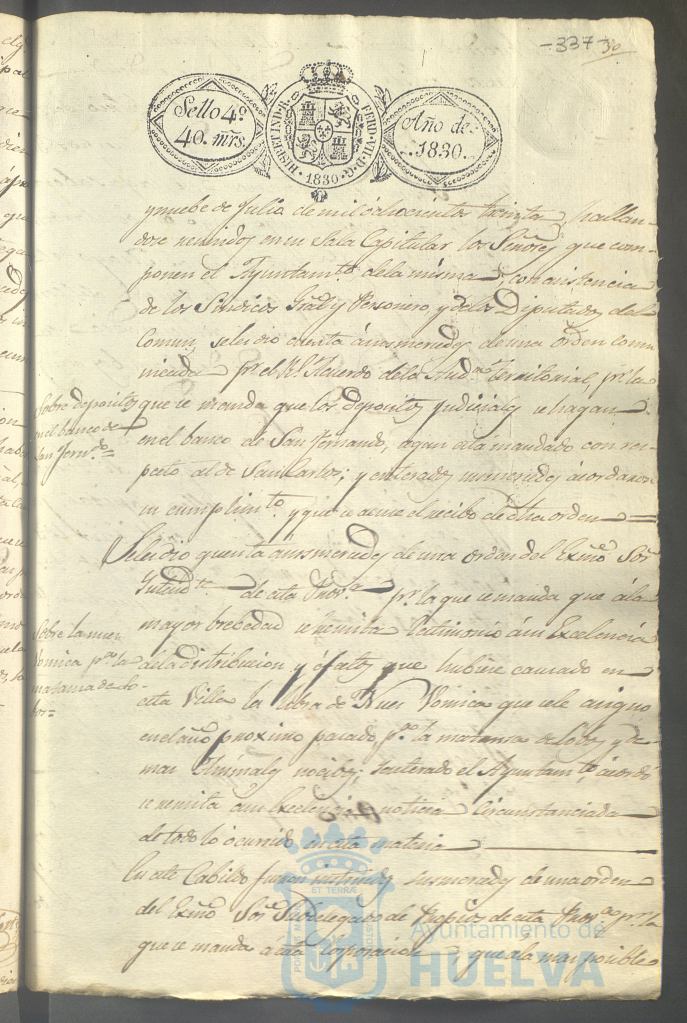 -337-
30
Sello 4º
40. mrs.
HISP. ET IND. R.
FERD. VII. D. G.
1830
Año de
1830.
y nuebe de Julio de mil ochocientos treinta, hallan-
dose reunidos en su Sala Capitular los Señores que com-
ponen el Ayuntamto. de la misma, con asistencia
de los Sindicos Gral y Personero, y de los Diputados del
Comun, se les dio cuenta á sus mercedes de una orden comu-
nicada pr. el Rl. Acuerdo de la Auda. territorial, pr. la
que se manda que los depositos judiciales se hagan
en el banco de San Fernando, segun está mandado con res-
pecto al de San Carlos; y enterados sus mercedes acordaron
su cumplimto. y que se acuse el recibo de dha orden =
Sobre depositos
en el banco de
San Ferndo. =
Se les dio quenta a sus mercedes de una orden del Exmo Sor.
Intendte. de esta Prova. pr. la que se manda que á la
mayor brebedad se remita testimonio á su Excelencia
de la distribucion y efectos que hubiere causado en
esta Villa la libra de Nues Vomica que se le asignó
en el año proximo pasado, pa. la matansa de Lobos y de-
mas Animales nocibos; y enterado el Ayuntamto. acordó
se remita á su Excelencia noticia circunstanciada
de todo lo ocurrido en esta materia
Sobre la nues
Vomica pa. la
matansa de Lo-
bos =
En este Cabildo fueron enterados sus mercedes de una orden
del Exmo Sor. Subdelegado de Propios de esta Prova. pr. la
que se manda a esta Corporacion que a la mas posible
ET TERRAE
Ayuntamiento de
HUELVA